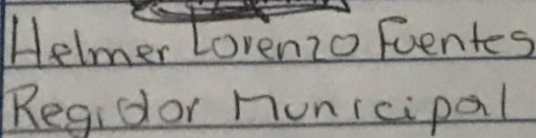 Helmer Lorenzo Fuentes
Regidor Municipal